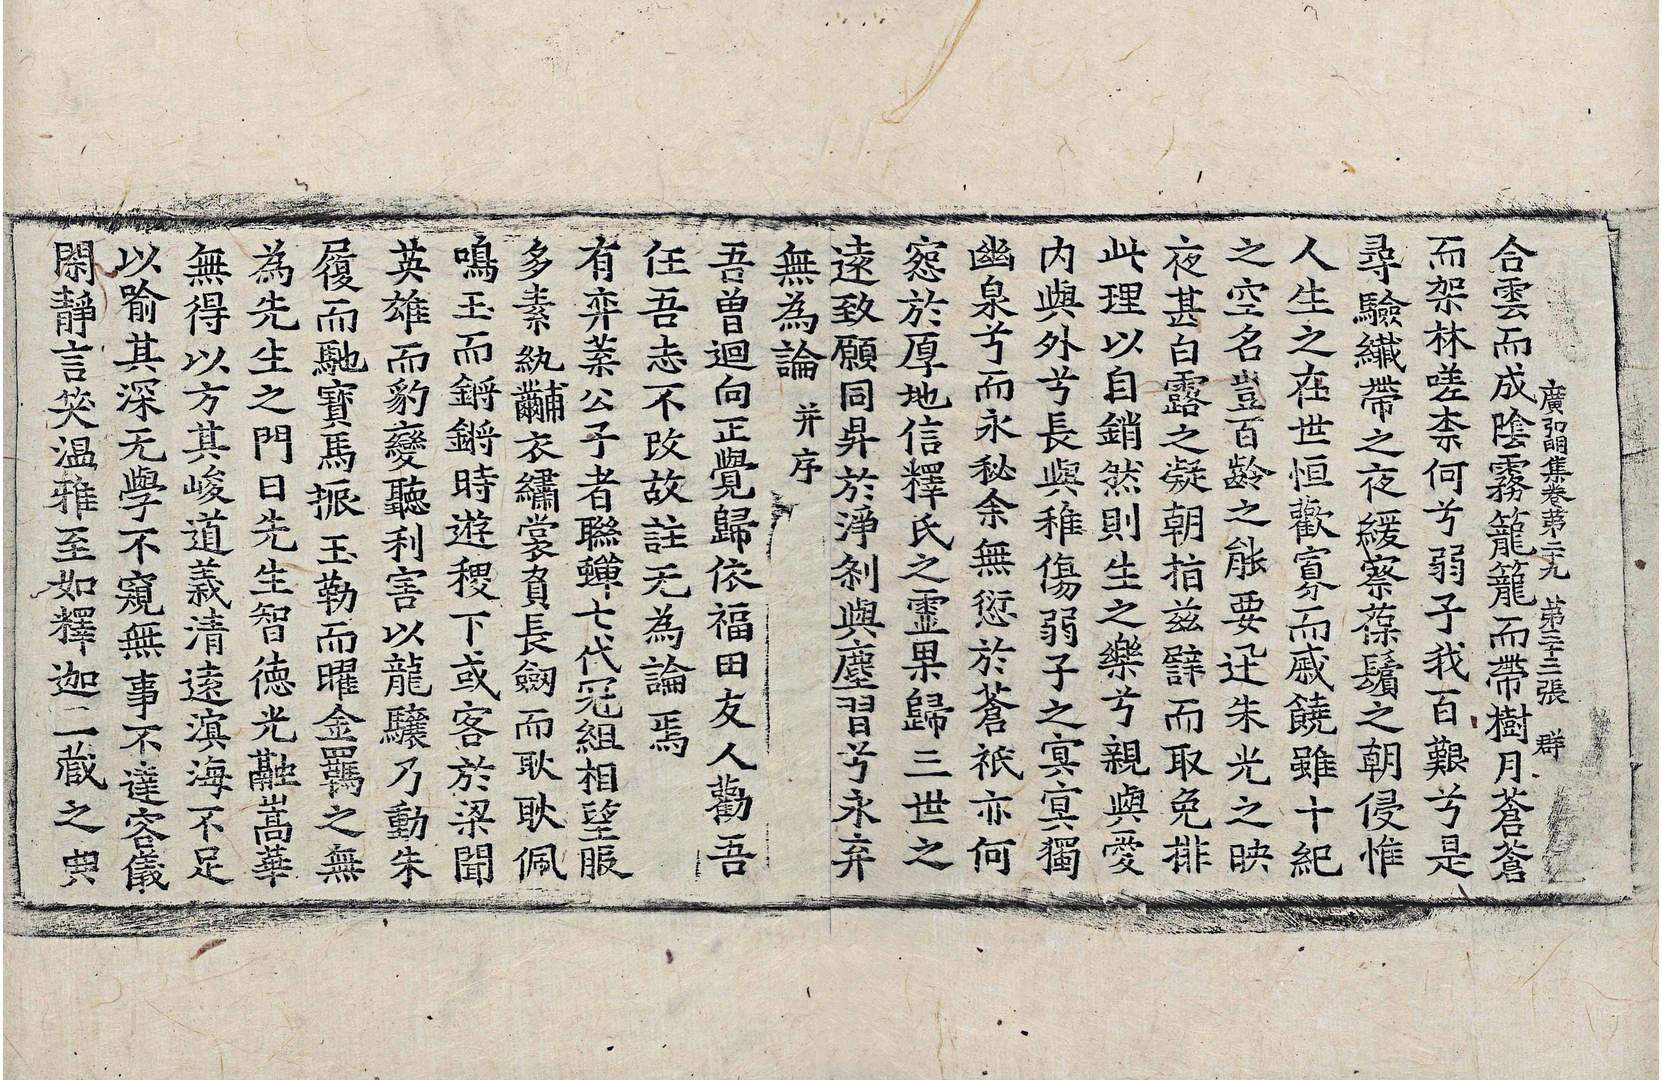 廣弘明集卷第二九 第三十三張 群
合雲而成陰霧籠籠而帶樹月蒼蒼
而架林嗟柰何兮弱子我百艱兮是
尋驗纖帶之夜緩察葆鬢之朝侵惟
人生之在世恒歡寡而戚饒雖十紀
之空名豈百齡之能要迋朱光之映
夜甚白露之凝朝指兹譬而取免排
此理以自銷然則生之樂兮親與愛
内與外兮長與稚傷弱子之冥冥獨
幽泉兮而永秘余無愆於蒼祇亦何
㤪於厚地信釋氏之靈果歸三世之
遠致願同昇於淨刹與塵習兮永弃
無為論 并序
吾曽迴向正覺歸依福田友人勸吾
任吾志不改故註无為論焉
有弈葉公子者聯蟬七代冠組相望服
多素紈黼衣繡裳負長劒而耿耿佩
鳴玉而鏘鏘時遊稷下或客於梁聞
英雄而豹變聽利害以龍驤乃動朱
履而馳寶馬振玉勒而曜金羈之無
為先生之門曰先生智徳光融嵩華
無得以方其峻道義清遠滇海不足
以踰其深无學不窺無事不達容儀
閑靜言笑温雅至如釋迦二藏之典